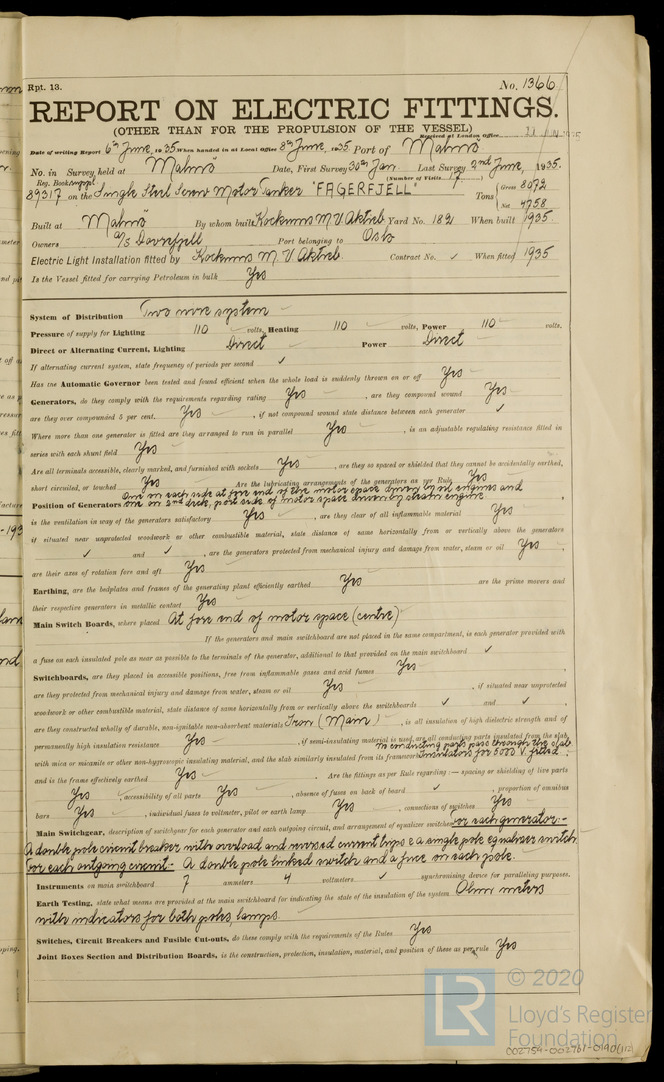 Rpt. 13.
No. 1366
REPORT ON ELECTRIC FITTINGS.
(OTHER THAN FOR THE PROPULSION OF THE VESSEL)
Received at London Office
Date of writing Report 6th June, 1935 When handed in at Local Office 8th June, 1935 Port of Malmö
No. in Survey held at Malmö Date, First Survey 30th Jan. Last Survey 2nd June, 1935.
Reg. Book. (Number of Visits 17)
89317 on the Single Steel Screw Motor Tanker "FAGERFJELL" Tons { Gross 8072
Net 4758
Built at Malmö By whom built Kockums M V Aktieb Yard No. 182 When built 1935.
Owners A/S Dovrefjell Port belonging to Oslo
Electric Light Installation fitted by Kockums M. V. Aktieb. Contract No. ✓ When fitted 1935
Is the Vessel fitted for carrying Petroleum in bulk Yes
System of Distribution Two wire system
Pressure of supply for Lighting 110 volts, Heating 110 volts, Power 110 volts.
Direct or Alternating Current, Lighting Direct Power Direct
If alternating current system, state frequency of periods per second ✓
Has the Automatic Governor been tested and found efficient when the whole load is suddenly thrown on or off Yes
Generators, do they comply with the requirements regarding rating Yes, are they compound wound Yes
are they over compounded 5 per cent. Yes, if not compound wound state distance between each generator ✓
Where more than one generator is fitted are they arranged to run in parallel Yes, is an adjustable regulating resistance fitted in
series with each shunt field Yes
Are all terminals accessible, clearly marked, and furnished with sockets Yes, are they so spaced or shielded that they cannot be accidentally earthed,
short circuited, or touched Yes Are the lubricating arrangements of the generators as per Rule Yes
One on each side at fore end of the motor space driven by oil engines and
Position of Generators one on 2nd deck, port side of motor space driven by steam engine.
is the ventilation in way of the generators satisfactory Yes, are they clear of all inflammable material Yes
if situated near unprotected woodwork or other combustible material, state distance of same horizontally from or vertically above the generators
✓ and ✓, are the generators protected from mechanical injury and damage from water, steam or oil Yes,
are their axes of rotation fore and aft Yes
Earthing, are the bedplates and frames of the generating plant efficiently earthed Yes are the prime movers and
their respective generators in metallic contact Yes
Main Switch Boards, where placed At fore end of motor space (centre)
If the generators and main switchboard are not placed in the same compartment, is each generator provided with
a fuse on each insulated pole as near as possible to the terminals of the generator, additional to that provided on the main switchboard ✓
Switchboards, are they placed in accessible positions, free from inflammable gases and acid fumes Yes,
are they protected from mechanical injury and damage from water, steam or oil Yes, if situated near unprotected
woodwork or other combustible material, state distance of same horizontally from or vertically above the switchboards ✓ and ✓,
are they constructed wholly of durable, non-ignitable non-absorbent materials Iron (Main), is all insulation of high dielectric strength and of
permanently high insulation resistance Yes, if semi-insulating material is used, are all conducting parts insulated from the slab
No conducting parts pass through the slab
with mica or micanite or other non-hygroscopic insulating material, and the slab similarly insulated from its framework Insulators for 5000 V. fitted.
and is the frame effectively earthed Yes. Are the fittings as per Rule regarding:— spacing or shielding of live parts
Yes, accessibility of all parts Yes, absence of fuses on back of board ✓, proportion of omnibus
bars Yes, individual fuses to voltmeter, pilot or earth lamp Yes, connections of switches Yes
Main Switchgear, description of switchgear for each generator and each outgoing circuit, and arrangement of equalizer switches For each generator:-
A double pole circuit breaker with overload and reversed current trips & a single pole equalizer switch
For each outgoing circuit:- A double pole linked switch and a fuse on each pole.
Instruments on main switchboard 7 ammeters 4 voltmeters ✓ synchronising device for paralleling purposes.
Earth Testing, state what means are provided at the main switchboard for indicating the state of the insulation of the system Ohm meters
with indicators for both poles, lamps
Switches, Circuit Breakers and Fusible Cut-outs, do these comply with the requirements of the Rules Yes
Joint Boxes Section and Distribution Boards, is the construction, protection, insulation, material, and position of these as per rule Yes
© 2020
LR
Lloyd's Register
Foundation
002754-002761-0190(1/2)